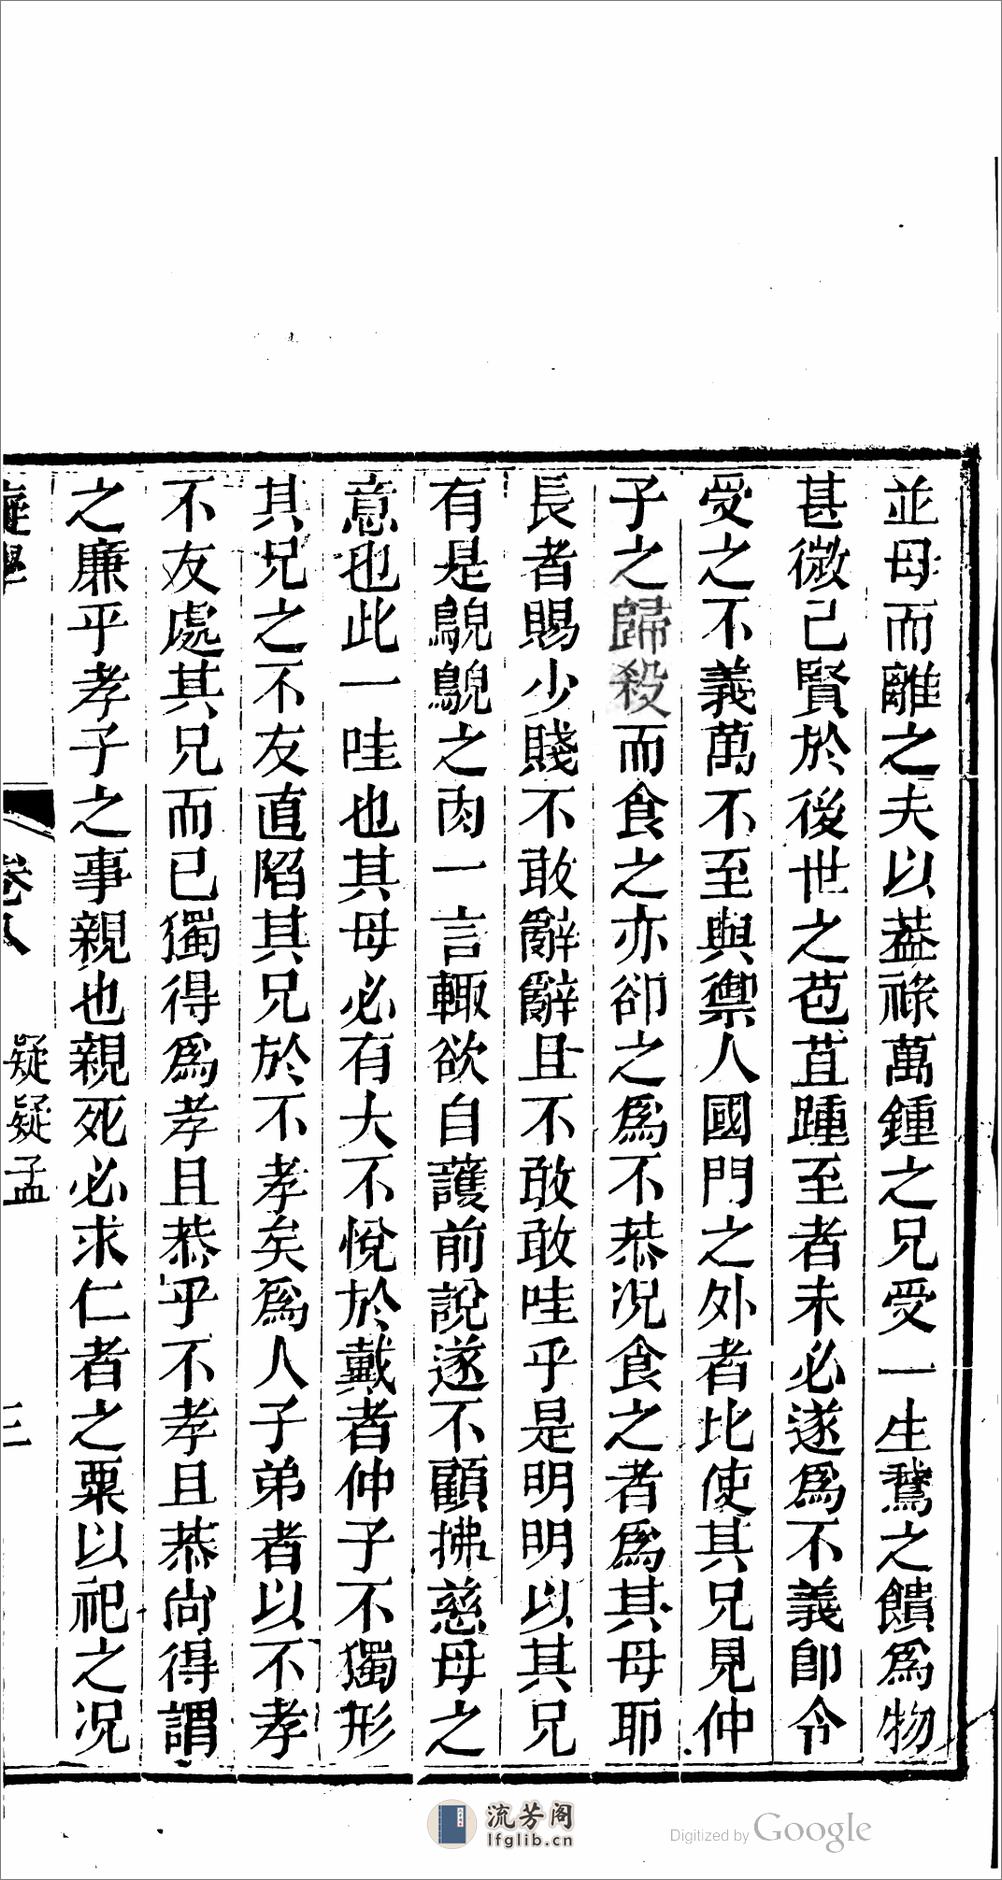 並母而離之夫以葢祿萬鍾之兄受一生鵞之饋爲物
甚微己賢於後世之苞苴踵至者未必遂爲不義卽令
受之不義萬不至與禦人國門之外者比使其兄見仲
子之歸殺而食之亦卻之爲不恭况食之者爲其母耶
長者賜少賤不敢辭辭且不敢敢哇乎是明明以其兄
有是鶃鶃之肉一言輙欲自護前說遂不顧拂慈母之
意也此一哇也其母必有大不悅於戴者仲子不獨形
其兄之不友直陷其兄於不孝矣爲人子弟者以不孝
不友處其兄而已獨得爲孝且恭乎不孝且恭尙得謂
之廉乎孝子之事親也親死必求仁者之粟以祀之况
卷八 疑疑孟 三
流芳阁
lfglib.cn
Digitized by Google